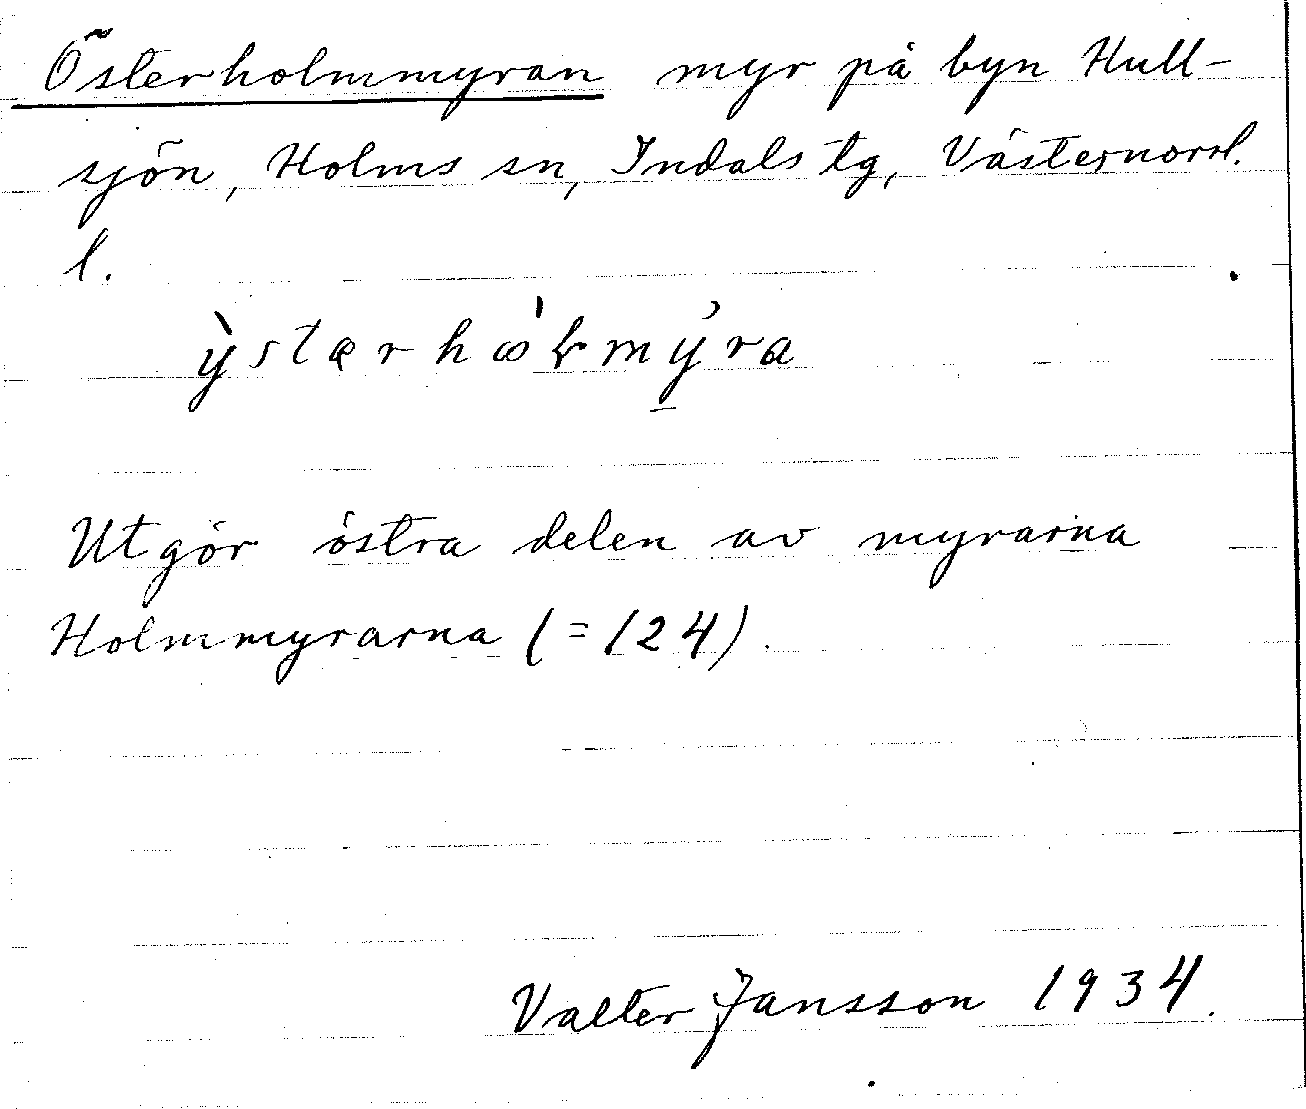 Österholmmyran myr på byn Hull-
sjön, Holms sn, Indals tg, Västernorrl.
l.
ỳstərhὼɫmy̌ra
Utgör östra delen av myrarna
Holmmyrarna (=124).
Valter Jansson 1934.